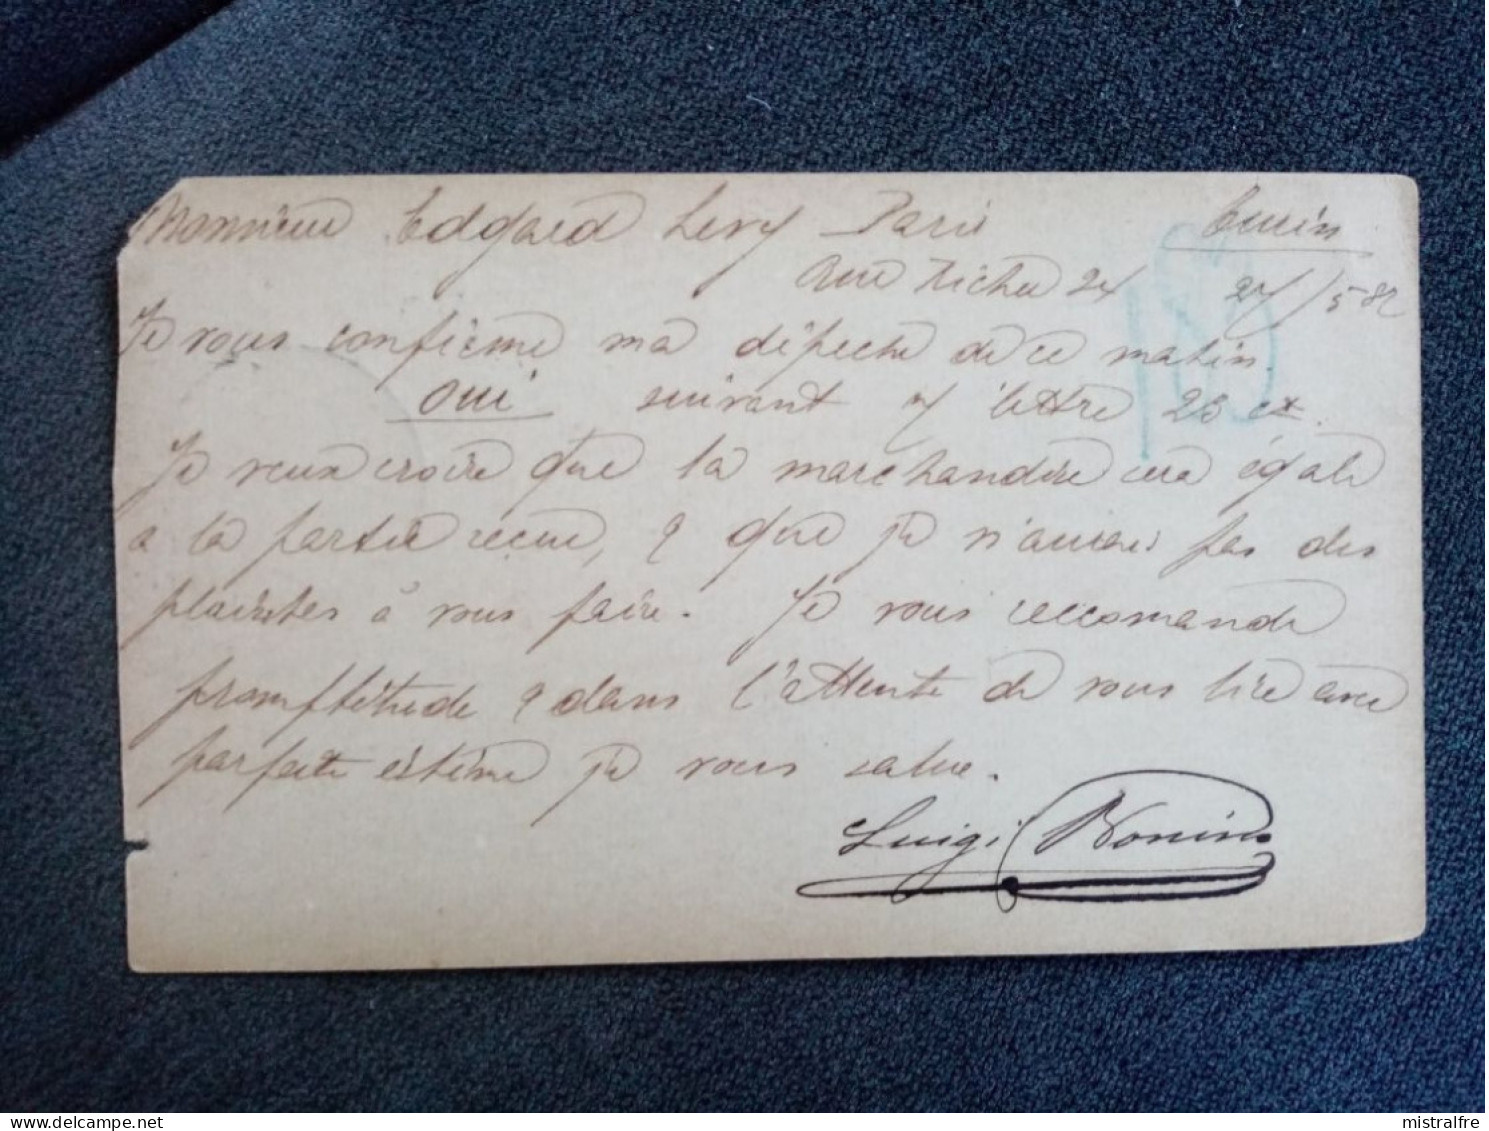 Monsieur Edgard Levy Paris Turin
Rue Richer 24 27/5 82
Je vous confirme ma dépeche de ce matin
oui suivant v/ lettre 23 ct.
Je veux croire que la marchandise sera égale
a la partie recue, & que je n'aurai pas des
plaintes à vous faire. Je vous reccomande
promptitude & dans l'attente de vous lire avec
parfaite estime je vous salue.
Luigi Bonino
mistralfre